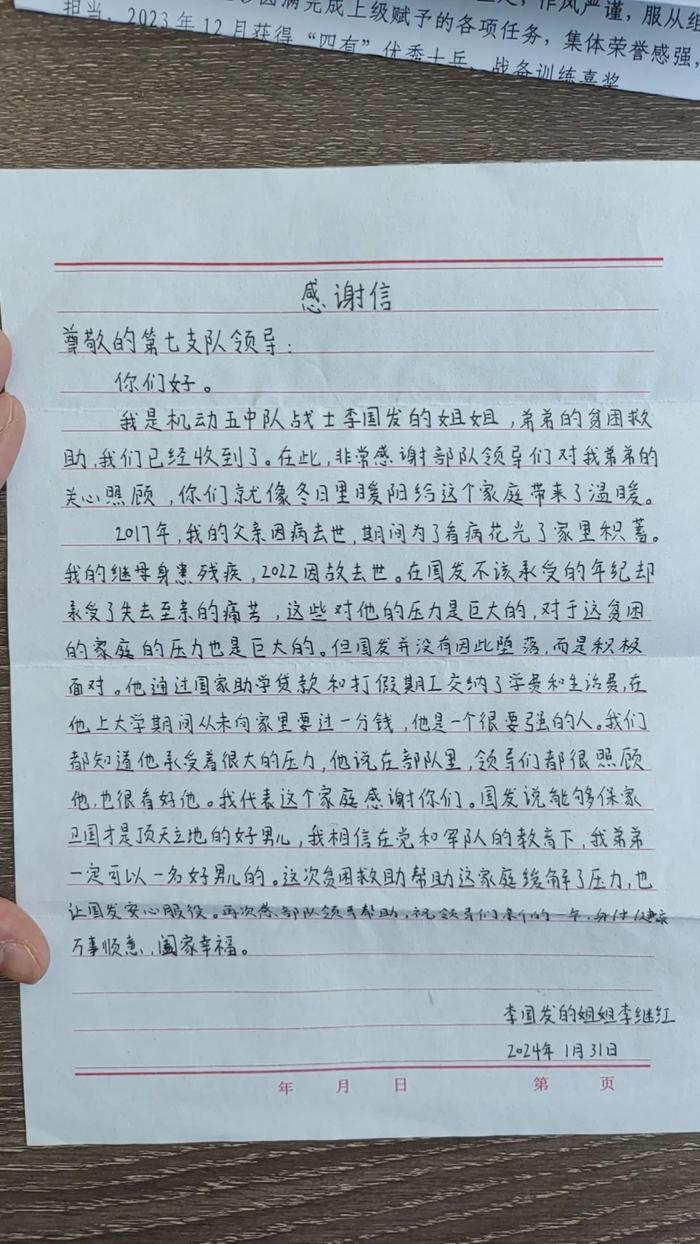 圆满完成上级赋予的各项任务,作风严谨,服从组
担当。2023年12月获得“四有”优秀士兵、战备训练嘉奖
集体荣誉感强,
感谢信
尊敬的第七支队领导:
你们好。
我是机动五中队战士李国发的姐姐,弟弟的贫困救
助,我们已经收到了。在此,非常感谢部队领导们对我弟弟的
关心照顾,你们就像冬日里暖阳给这个家庭带来了温暖。
2017年,我的父亲因病去世,期间为了看病花光了家里积蓄。
我的继母身患残疾,2022因故去世。在国发不该承受的年纪却
承受了失去至亲的痛苦,这些对他的压力是巨大的,对于这贫困
的家庭的压力也是巨大的。但国发并没有因此堕落,而是积极
面对。他通过国家助学贷款和打假期工交纳了学费和生活费,在
他上大学期间从未向家里要过一分钱,他是一个很要强的人。我们
都知道他承受着很大的压力,他说在部队里,领导们都很照顾
他,也很看好他。我代表这个家庭感谢你们。国发说能够保家
卫国才是顶天立地的好男儿,我相信在党和军队的教育下,我弟弟
一定可以一名好男儿的。这次贫困救助帮助这家庭缓解了压力,也
让国发安心服役。再次感部队领导帮助,祝领导们新的一年,身体健康
万事顺意,阖家幸福。
李国发的姐姐李继红
2024年1月31日
年 月 日 第 页